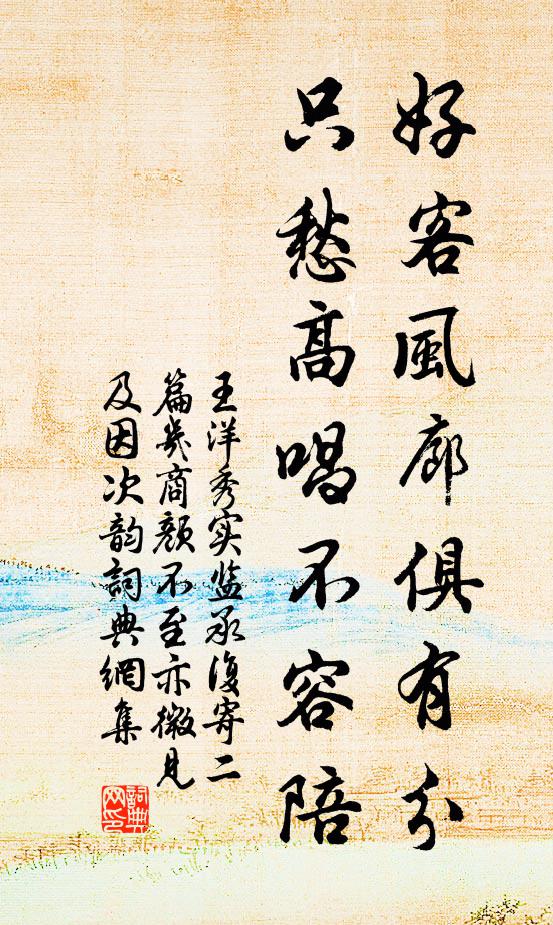 好客風廊俱有分
只愁高唱不容陪
王洋秀实监丞復寄二
篇幾商颜不至亦微見
及因次韵詞典網集
詞典網印